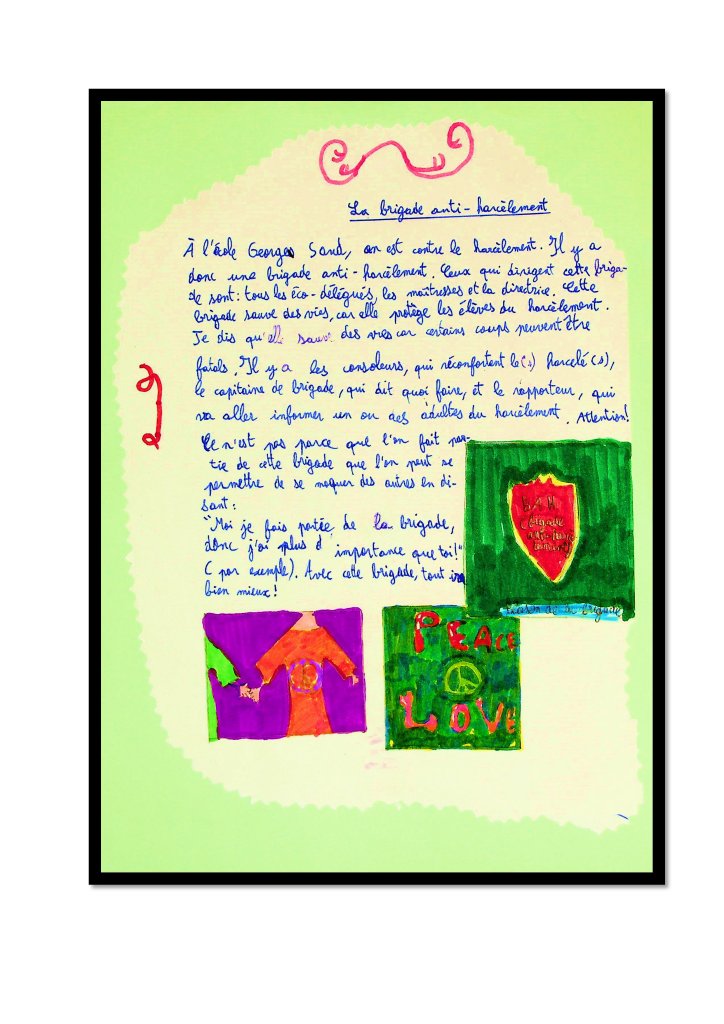 La brigade anti-harcèlement
À l'école Georges Sand, on est contre le harcèlement. Il y a
donc une brigade anti-harcèlement. Ceux qui dirigent cette briga-
de sont: tous les éco-délégués, les maîtresses et la directrice. Cette
brigade sauve des vies, car elle protège les élèves du harcèlement.
Je dis qu'elle sauve des vies car certains coups peuvent être
fatals. Il y a les consoleurs, qui réconfortent le(s) harcelé(s),
le capitaine de brigade, qui dit quoi faire, et le rapporteur, qui
va aller informer un ou des adultes du harcèlement. Attention!
Ce n'est pas parce que l'on fait par-
tie de cette brigade que l'on peut se
permettre de se moquer des autres en di-
sant:
"Moi je fais partie de la brigade,
donc j'ai plus d'importance que toi!"
(par exemple). Avec cette brigade, tout ira
bien mieux!
B.A.H.
(brigade
anti-harcè
lement)
blason de la brigade
PEACE
LOVE